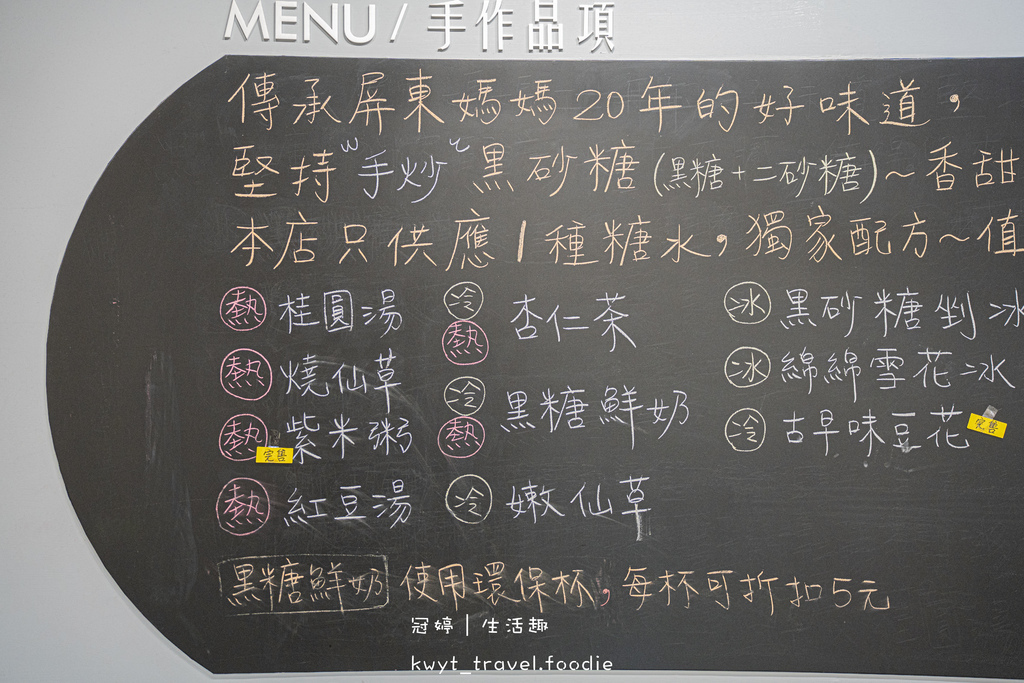 MENU / 手作品項
傳承屏東媽媽20年的好味道，
堅持"手炒"黑砂糖(黑糖+二砂糖)~香甜
本店只供應1種糖水，獨家配方~值
熱 桂圓湯
熱 燒仙草
熱 紫米粥
完售
熱 紅豆湯
冷 熱 杏仁茶
冷 熱 黑糖鮮奶
冷 嫩仙草
冰 黑砂糖剉冰
冰 綿綿雪花冰
冷 古早味豆花
完售
黑糖鮮奶 使用環保杯，每杯可折扣5元
冠婷 | 生活趣
kwyt_travel.foodie